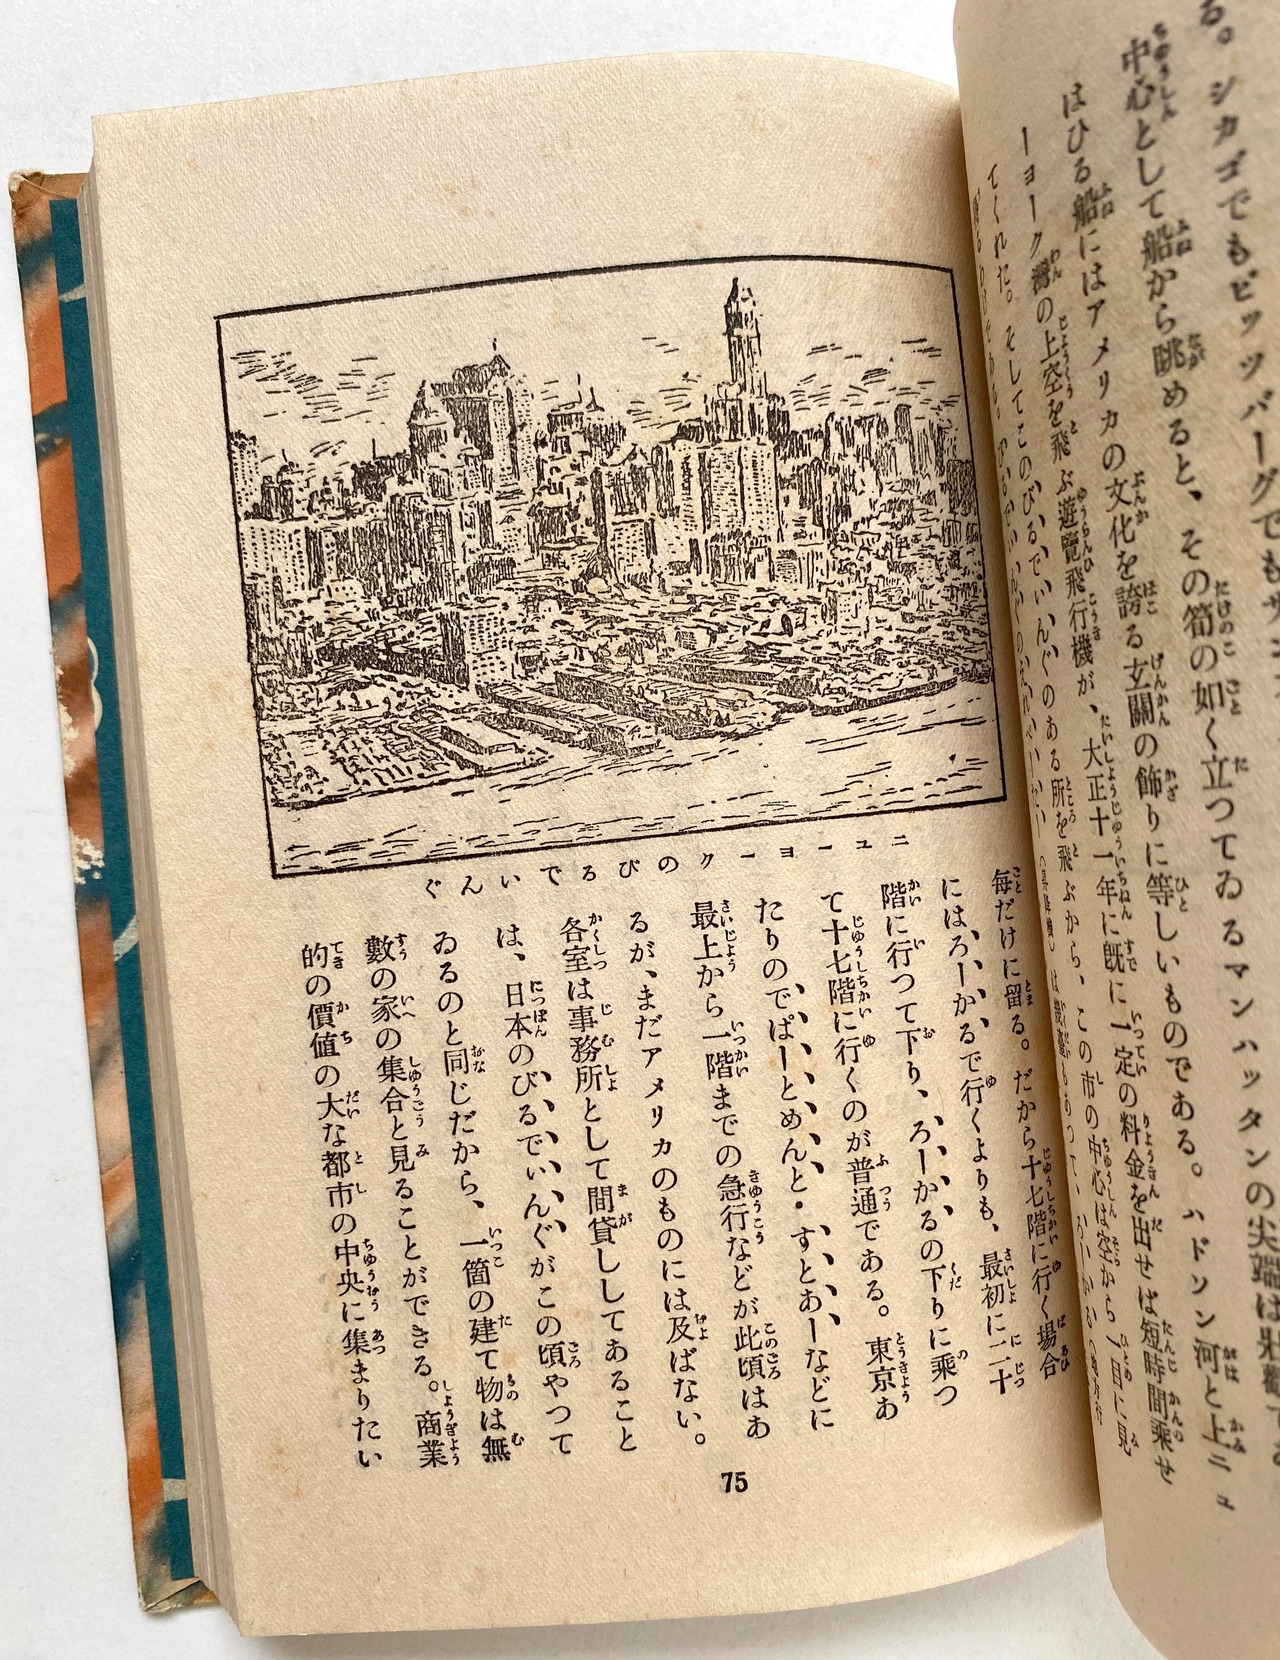 る。シカゴでもピッツバーグでもサ
中心として船から眺めると、その筍の如く立つてゐるマンハッタンの尖端は壯觀で
はひる船にはアメリカの文化を誇る玄關の飾りに等しいものである。ハドソン河と上ニュ
ーヨーク灣の上空を飛ぶ遊覽飛行機が、大正十一年に既に一定の料金を出せば短時間乘せ
てくれた。そしてこのびるでぃんぐのある所を飛ぶから、この市の中心は空から一目に見
ニューヨークのびるでいんぐ
毎だけに留る。だから十七階に行く場合
には、ろーかるで行くよりも、最初に二十
階に行つて下り、ろーかるの下りに乘つ
て十七階に行くのが普通である。東京あ
たりのでぱーとめんと・すとあーなどに
最上から一階までの急行などが此頃はあ
るが、まだアメリカのものには及ばない。
各室は事務所として間貸ししてあること
は、日本のびるでぃんぐがこの頃やつて
ゐるのと同じだから、一箇の建て物は無
數の家の集合と見ることができる。商業
的の價値の大な都市の中央に集まりたい
75